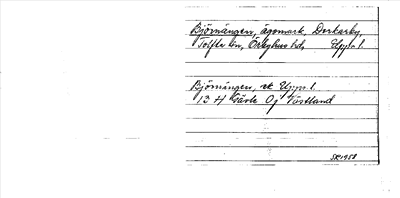 Björnängen, ägomark, Dorkarby,
Tolfta sn, Örbyhus hd, Upps. l.
Björnängen, ek Upps. l.
13 H Gävle Og Västland
SR 1958